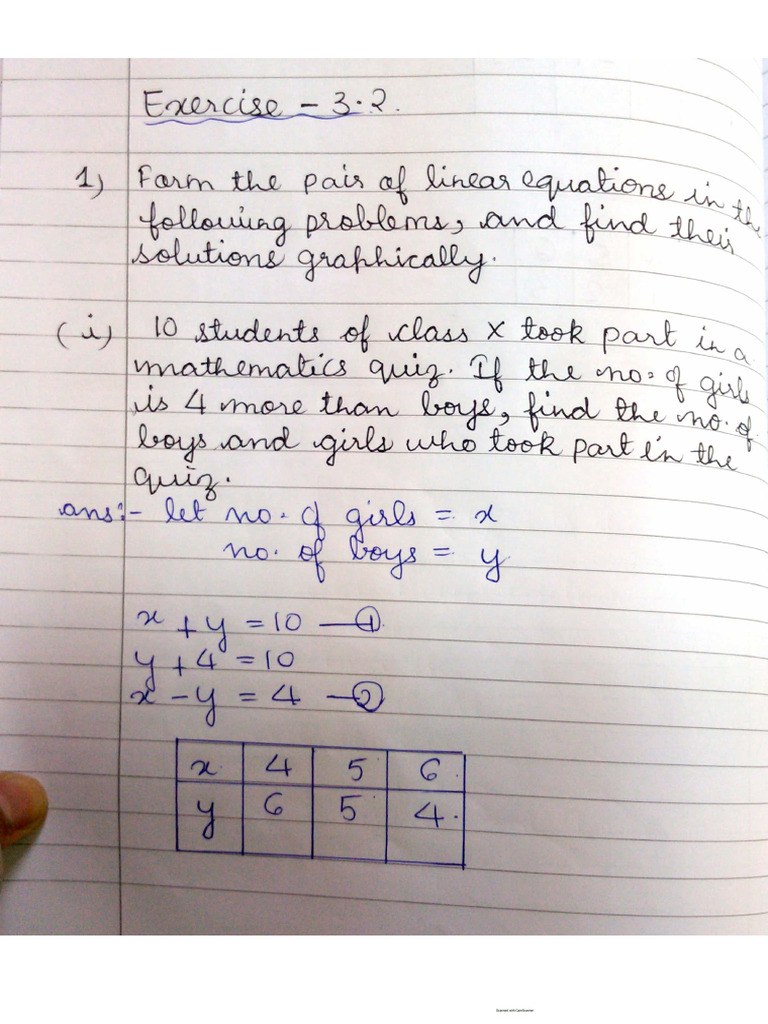 Exercise - 3.2.
1) Form the pair of linear equations in the
following problems, and find their
solutions graphically.
(i) 10 students of class X took part in a
mathematics quiz. If the no. of girls
is 4 more than boys, find the no. of
boys and girls who took part in the
quiz.
ans:- let no. of girls = x
no. of boys = y
x + y = 10 —①
y + 4 = 10
x - y = 4 —②
x 4 5 6
y 6 5 4
Scanned with CamScanner